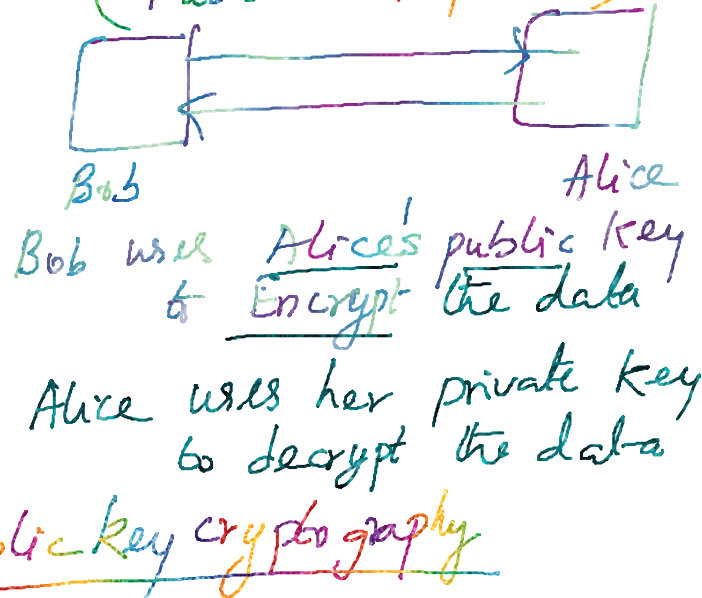 Bob
Alice
Bob uses Alice's public key
to Encrypt the data
Alice uses her private key
to decrypt the data
lic key cryptography